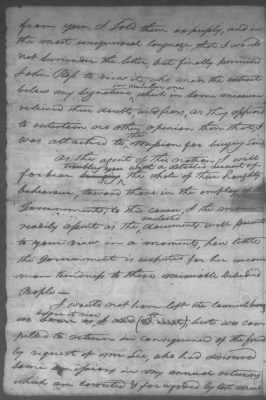 from you, I told them explicitly, and in
the most unequivocal language, that I would
not surrender the letter, but finally permitted
John Ross to view it, who made the extract
below my signature, which in some measure
relieved their doubts, and fears, as they appeared
to entertain no other opinion than that, I
was attached to the mission for buying Land
As the agent of the nation, I will
forbear the whole of their haughty
behaviour, toward those in the employ
Government, to this cause, I the more
readily as the documents will present
to your view in a moment, how little
the Government is respected for her uncom
mon kindness to these miserable deluded
People—
I would not have left the Council
as soon as I did, but was com
pelled to return in consequence of the
by request of Mr Lee, who had discovered
some errors in my annual returns
which are corrected & forwarded by last mail